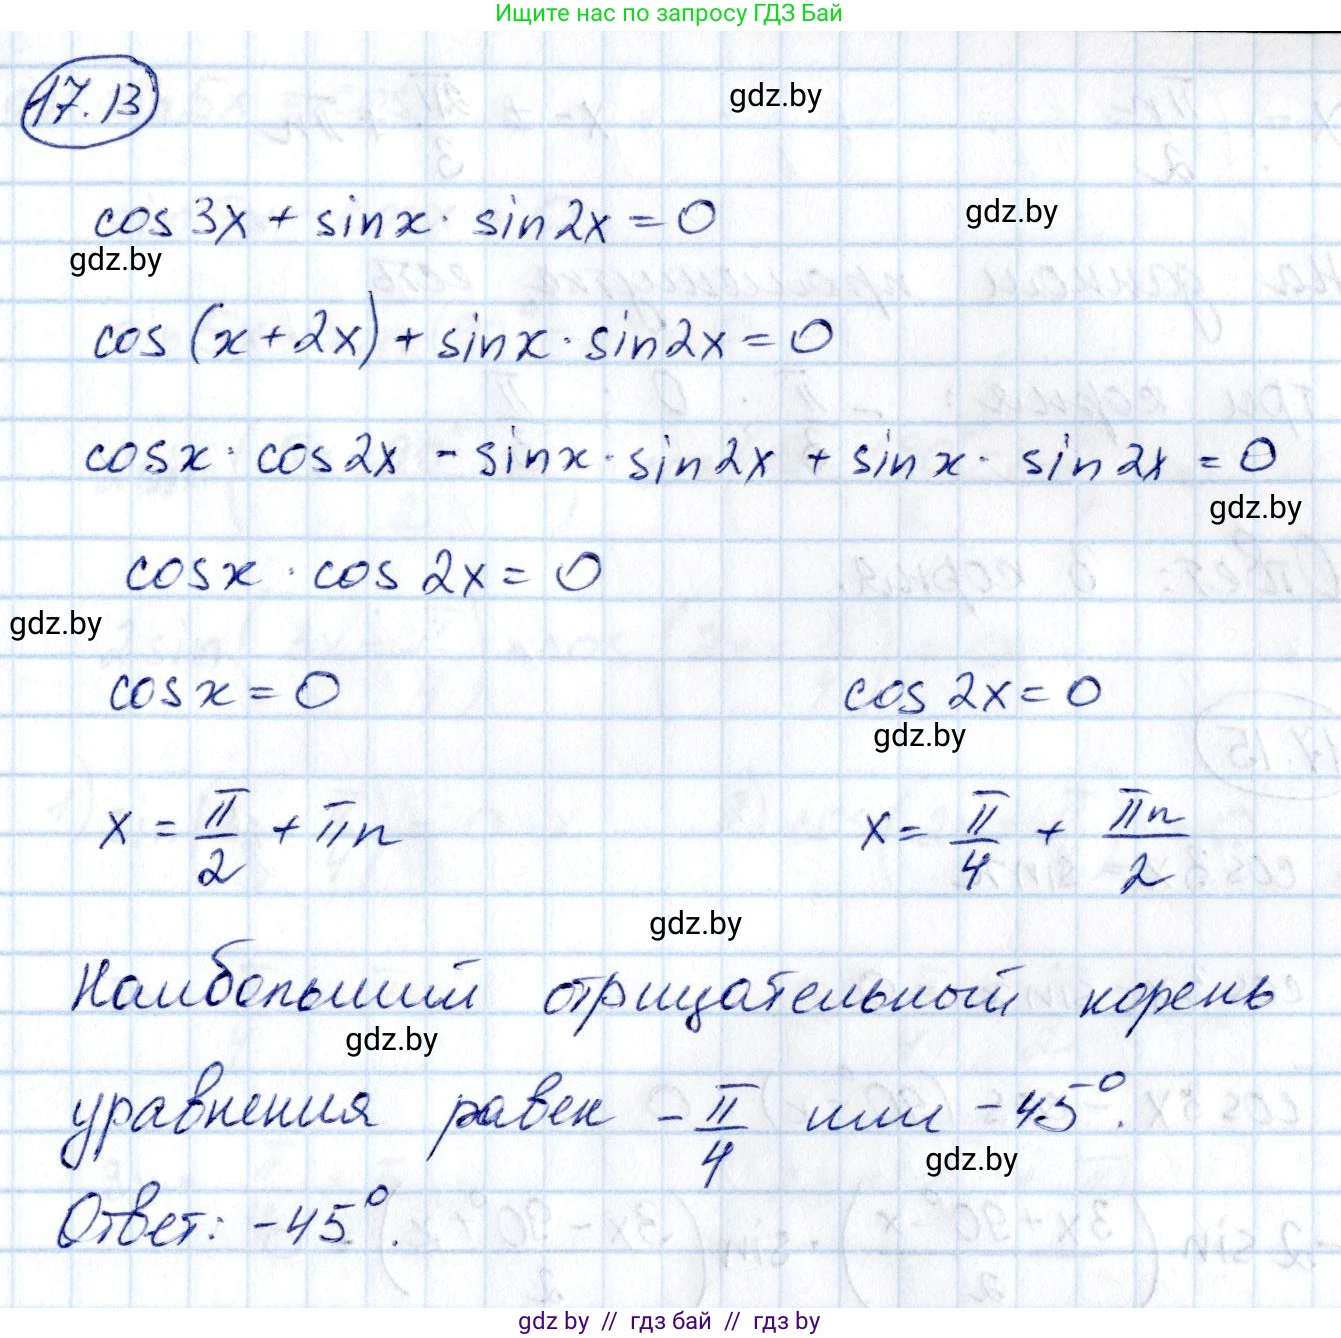 Ищите нас по запросу ГДЗ Бай
17.13
gdz.by
cos 3x + sin x · sin 2x = 0
gdz.by
gdz.by
cos (x + 2x) + sin x · sin 2x = 0
cos x · cos 2x - sin x · sin 2x + sin x · sin 2x = 0
gdz.by
cos x · cos 2x = 0
gdz.by
cos x = 0 cos 2x = 0
gdz.by
x = π/2 + πn x = π/4 + πn/2
gdz.by
Наибольший отрицательный корень
gdz.by
уравнения равен - π/4 или -45°.
gdz.by
Ответ: -45°.
gdz.by // гдз бай // gdz.by